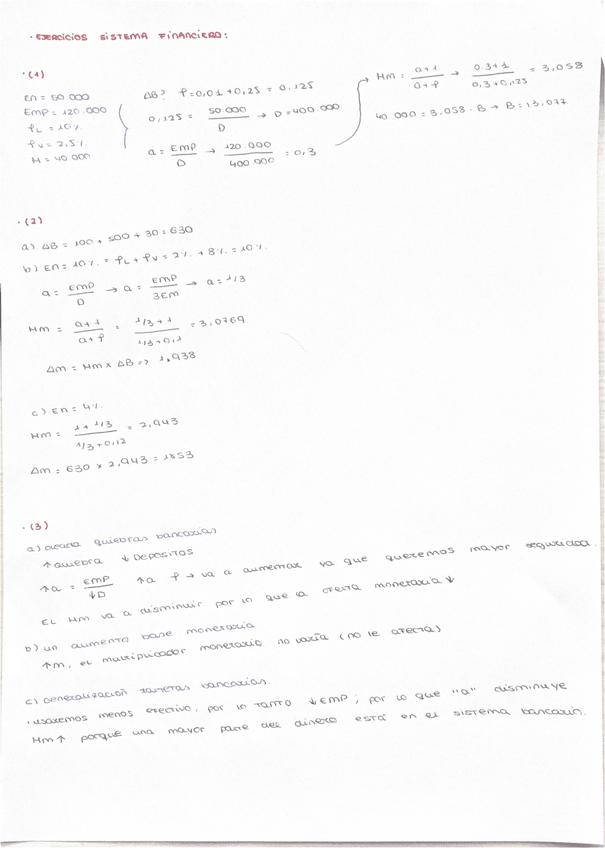 · EJERCICIOS SISTEMA FINANCIERO:
· (1)
En = 50.000
EMP = 120.000
ρL = 10%
ρV = 2,5%
M = 40 000
ΔB? ρ = 0,01 + 0,25 = 0.125
0,125 = 50.000 / D → D = 400.000
a = EMP / D → 120.000 / 400.000 = 0,3
→ Mm = a+1 / a+ρ → 0.3+1 / 0,3+0,125 = 3,058
40 000 = 3,058 · B → B = 13,077
· (2)
a) ΔB = 100 + 500 + 30 = 630
b) En = 10% = ρL + ρV = 2% + 8% = 10%
a = EMP / D → a = EMP / 3EM → a = 1/3
Mm = a+1 / a+ρ = 1/3 + 1 / 1/3 + 0,1 = 3,0769
Δm = Mm x ΔB => 1,938
c) En = 4%
Mm = 1 + 1/3 / 1/3 + 0,12 = 2,943
Δm = 630 x 2,943 = 1853
· (3)
a) quiebras bancarias
↑ quiebra ↓ Depositos
↑a = EMP / ↓D ↑a ρ → va a aumentar ya que queremos mayor seguridad.
El Mm va a disminuir por lo que la oferta monetaria ↓
b) un aumento base monetaria
↑m, el multiplicador monetario no varía (no le afecta)
c) Generalización tarjetas bancarias.
· usaremos menos efectivo, por lo tanto ↓EMP; por lo que "a" disminuye
Mm↑ porque una mayor parte del dinero está en el sistema bancario.